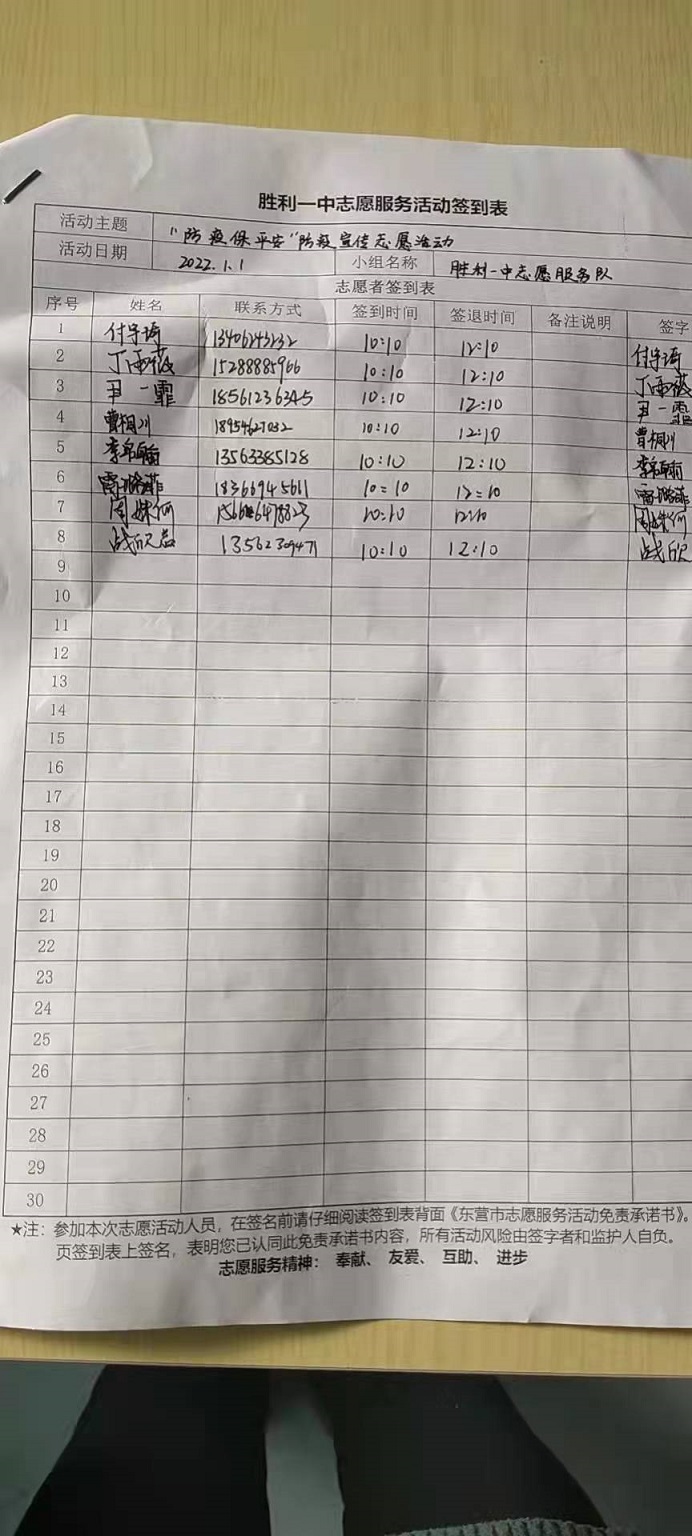 胜利一中志愿服务活动签到表
活动主题 "防疫保平安"防疫宣传志愿活动
活动日期 2022.1.1 小组名称 胜利一中志愿服务队
志愿者签到表
序号 姓名 联系方式 签到时间 签退时间 备注说明 签字
1 付宇琦 13406243232 10:10 12:10 付宇琦
2 丁雨薇 15288885966 10:10 12:10 丁雨薇
3 尹一霏 18561236345 10:10 12:10 尹一霏
4 曹桐川 18954627032 10:10 12:10 曹桐川
5 13563385128 10:10 12:10
6 18366945611 10:10 12:10
7 周姝何 10:10 12:10 周姝何
8 战欣 13562309471 10:10 12:10 战欣
9
10
11
12
13
14
15
16
17
18
19
20
21
22
23
24
25
26
27
28
29
30
★注：参加本次志愿活动人员，在签名前请仔细阅读签到表背面《东营市志愿服务活动免责承诺书》。
页签到表上签名，表明您已认同此免责承诺书内容，所有活动风险由签字者和监护人自负。
志愿服务精神： 奉献、 友爱、 互助、 进步